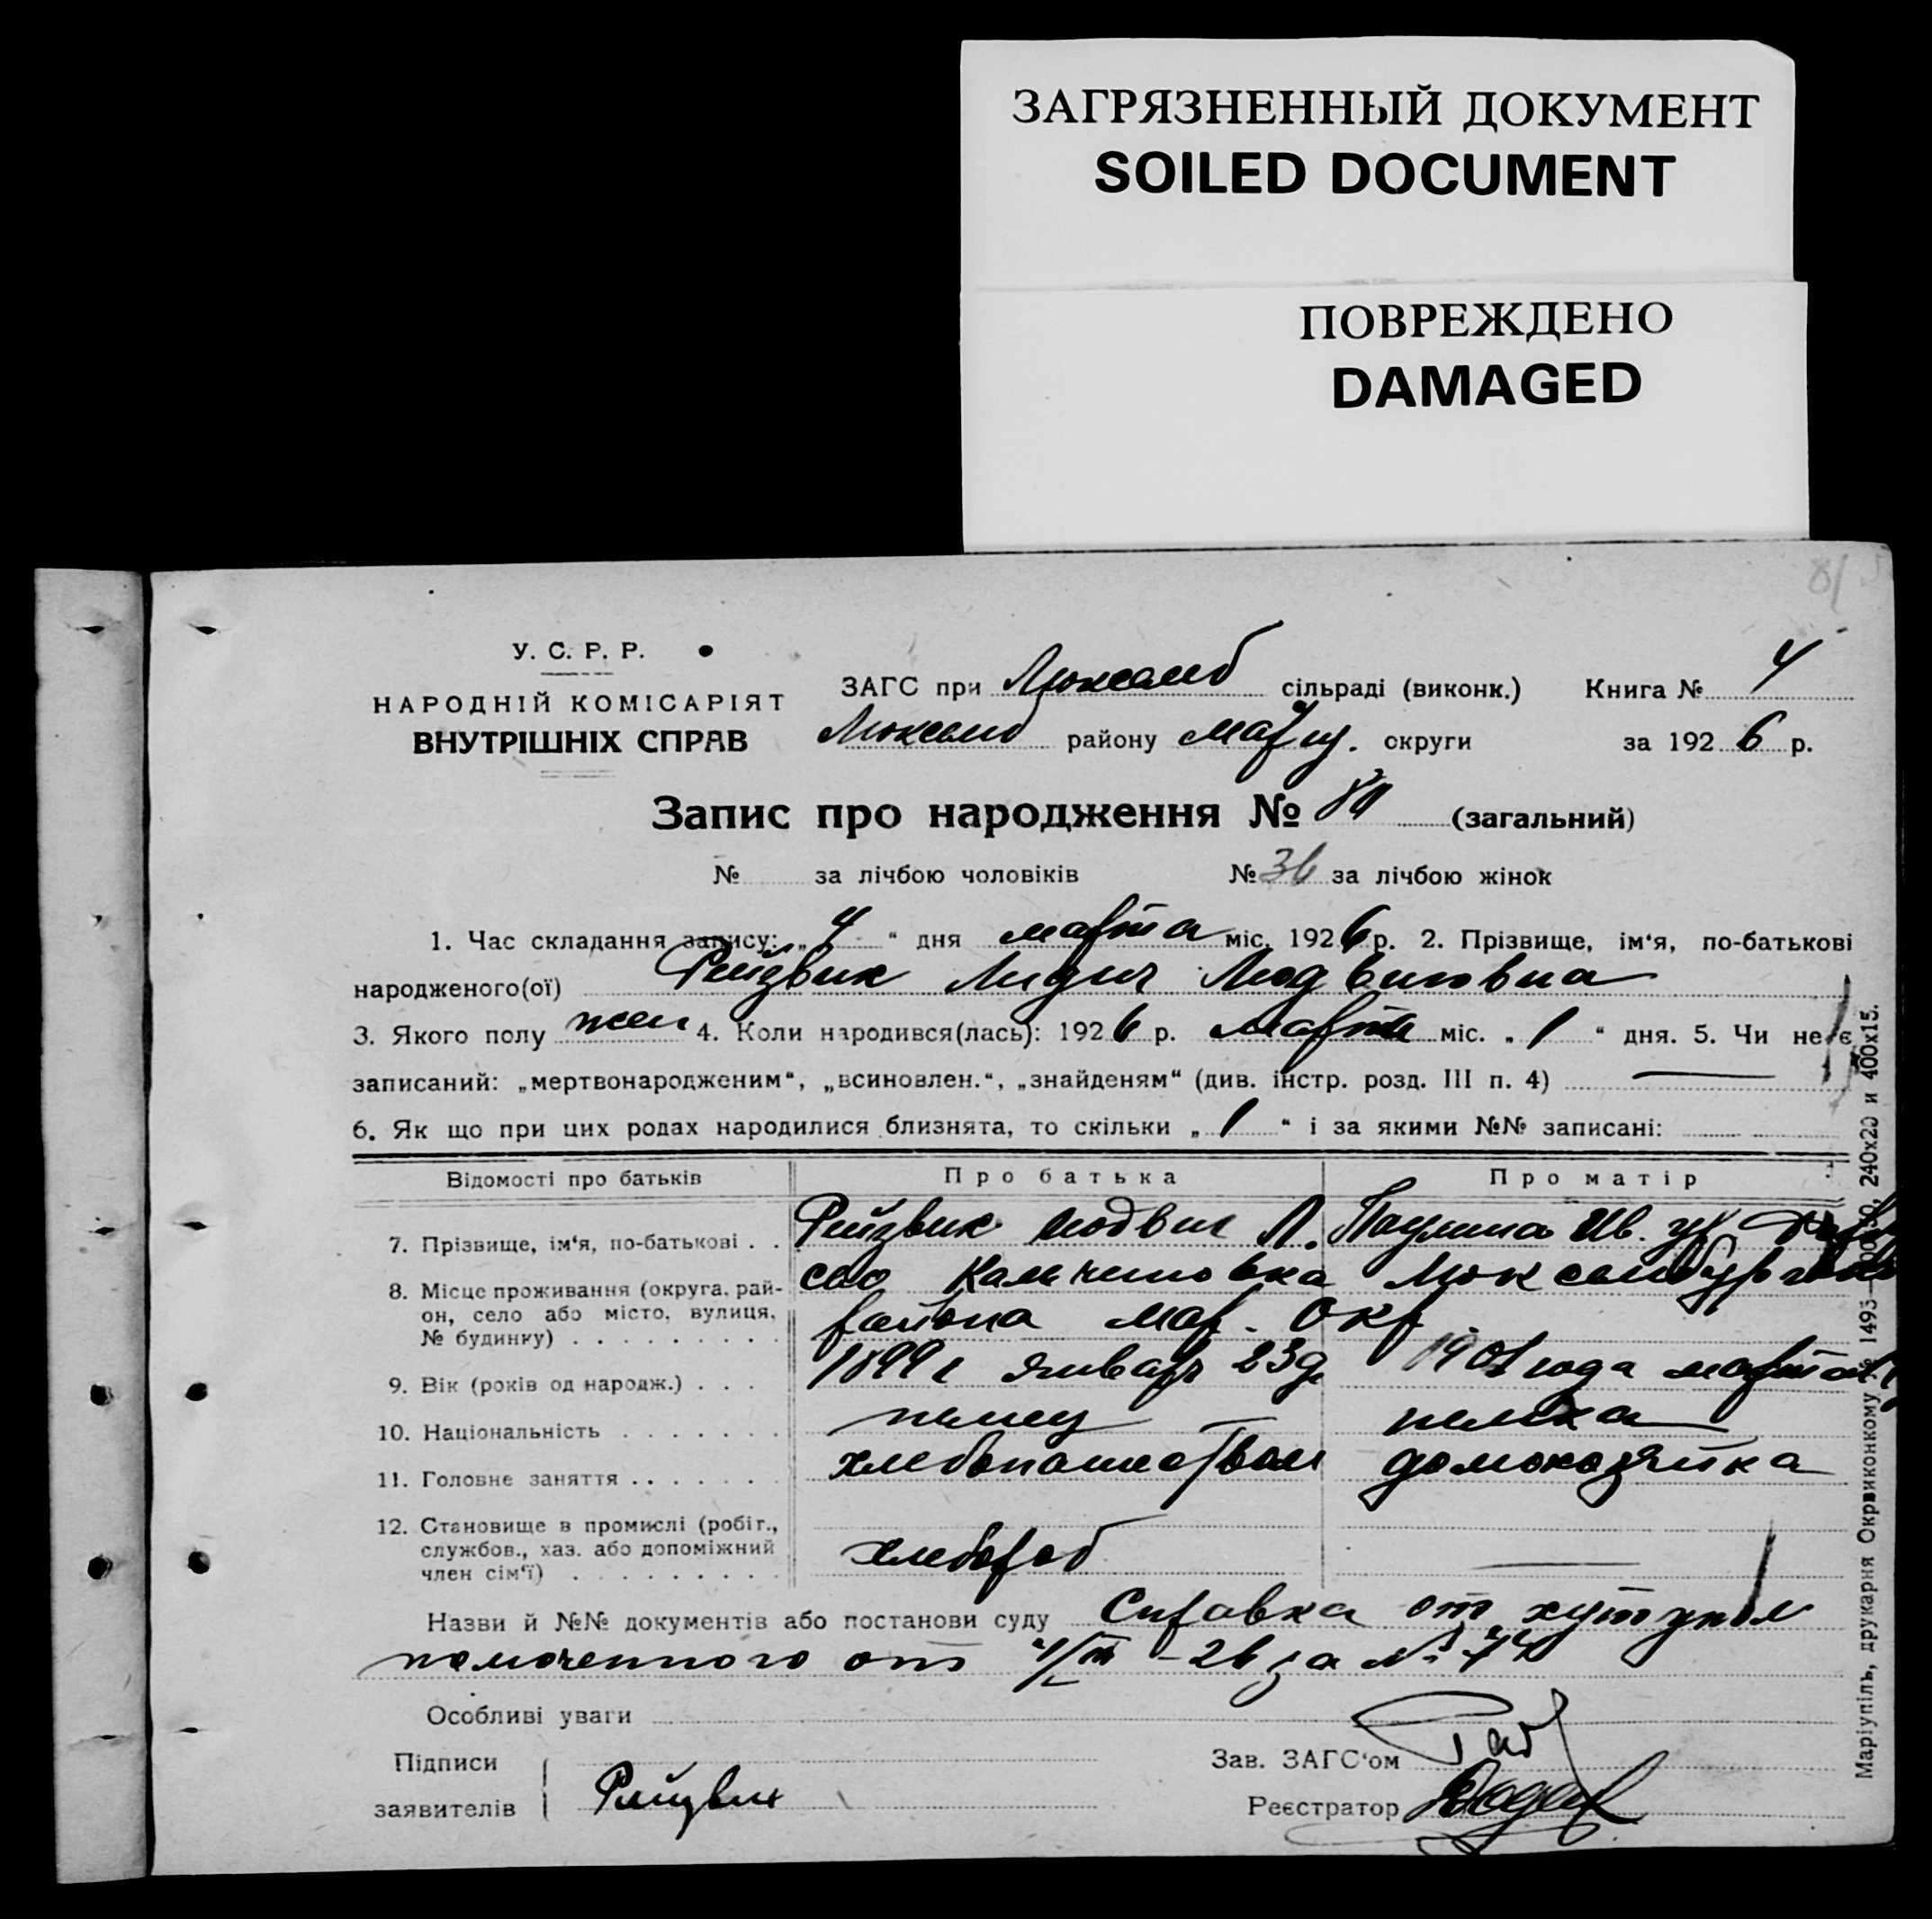 ЗАГРЯЗНЕННЫЙ ДОКУМЕНТ
SOILED DOCUMENT
ПОВРЕЖДЕНО
DAMAGED
У. С. Р. Р.
НАРОДНІЙ КОМІСАРІЯТ
ВНУТРІШНІХ СПРАВ
ЗАГС при Люксемб сільраді (виконк.) Книга № 4
Люксемб району мариу. округи за 1926 р.
Запис про народження № (загальний)
№ за лічбою чоловіків № 36 за лічбою жінок
1. Час складання запису: „4“ дня марта міс. 1926 р. 2. Прізвище, ім‘я, по-батькові
народженого(ої) Рейзвик Лидия Людвиговна
3. Якого полу жен 4. Коли народився(лась): 1926 р. марта міс. „1“ дня. 5. Чи не є
записаний: „мертвонародженим“, „всиновлен.“, „знайденям“ (див. інстр. розд. III п. 4) —
6. Як що при цих родах народилися близнята, то скільки „1“ і за якими №№ записані:
Відомості про батьків Про батька Про матір
7. Прізвище, ім‘я, по-батькові . . Рейзвик Людвиг Л. Паулина Ив. ур.
8. Місце проживання (округа, рай-
он, село або місто, вулиця,
№ будинку) . . . . . . . . .
село Кальчиновка Люксембургского
района мар. окр.
9. Вік (років од народж.) . . . 1899 г январь 23 д 1901 года марта
10. Національність . . . . . . . немец немка
11. Головне заняття . . . . . . . хлебопашеством домохозяйка
12. Становище в промислі (робіт.,
службов., хаз. або допоміжний
член сім‘ї) . . . . . . . . .
хлебороб —
Назви й №№ документів або постанови суду Справка от хутупол
номоченного от 4/III-26 за №
Особливі уваги
Підписи
заявителів Рейзвик
Зав. ЗАГС‘ом
Реєстратор
Маріупіль, друкарня Окрвиконкому № 1493 240х20 и 400х15.